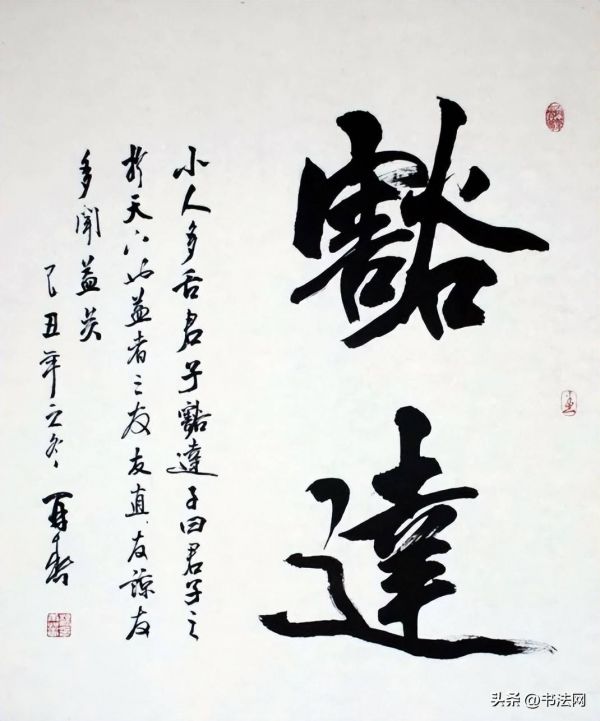 豁達
小人多舌君子豁達子曰君子之
於天下也益者三友友直友諒友
多聞益矣
己丑年立冬
头条 @书法网